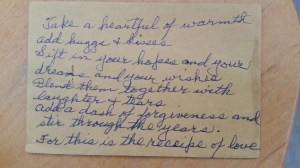 Take a heartful of warmth
add huggs & kisses
Sift in your hopes and your
dreams and your wishes
Blend them together with
laughter & tears
add a dash of forgiveness and
stir through the years.
For this is the receipe of love